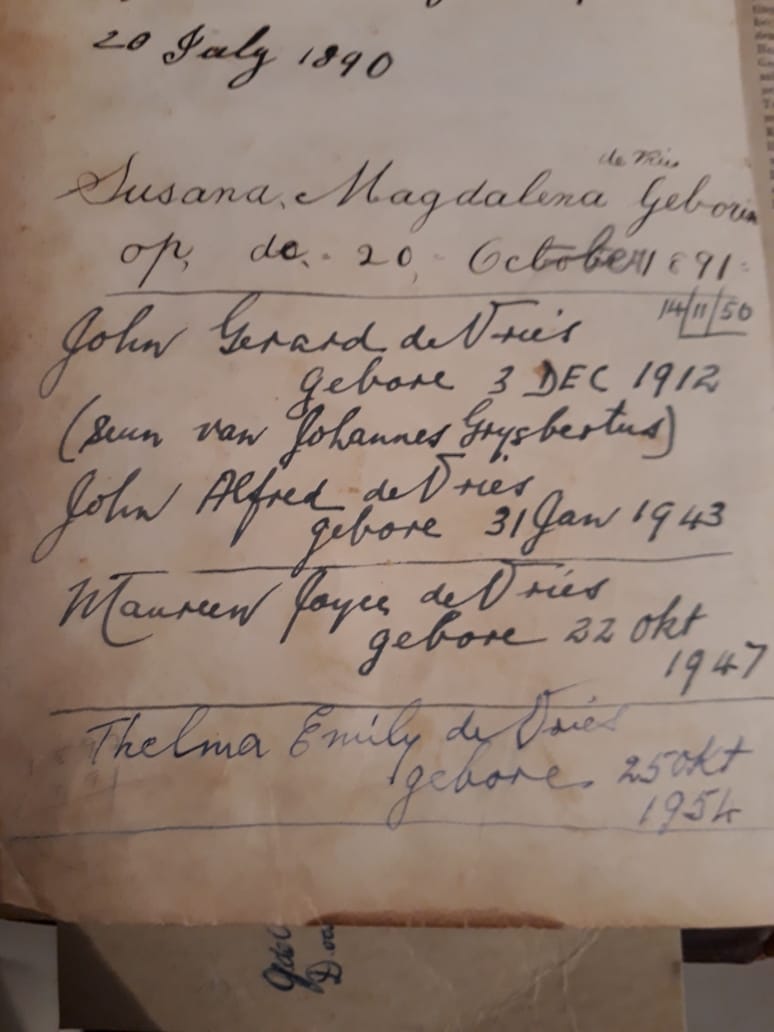 20 July 1890
de Vries
Susana Magdalena Geboren
op de 20 October 1891
14/11/50
John Gerard de Vries
gebore 3 DEC 1912
(seun van Johannes Grysbertus)
John Alfred de Vries
gebore 31 Jan 1943
Maureen Joyce de Vries
gebore 22 Okt
1947
Thelma Emily de Vries
gebore 25 Okt
1954